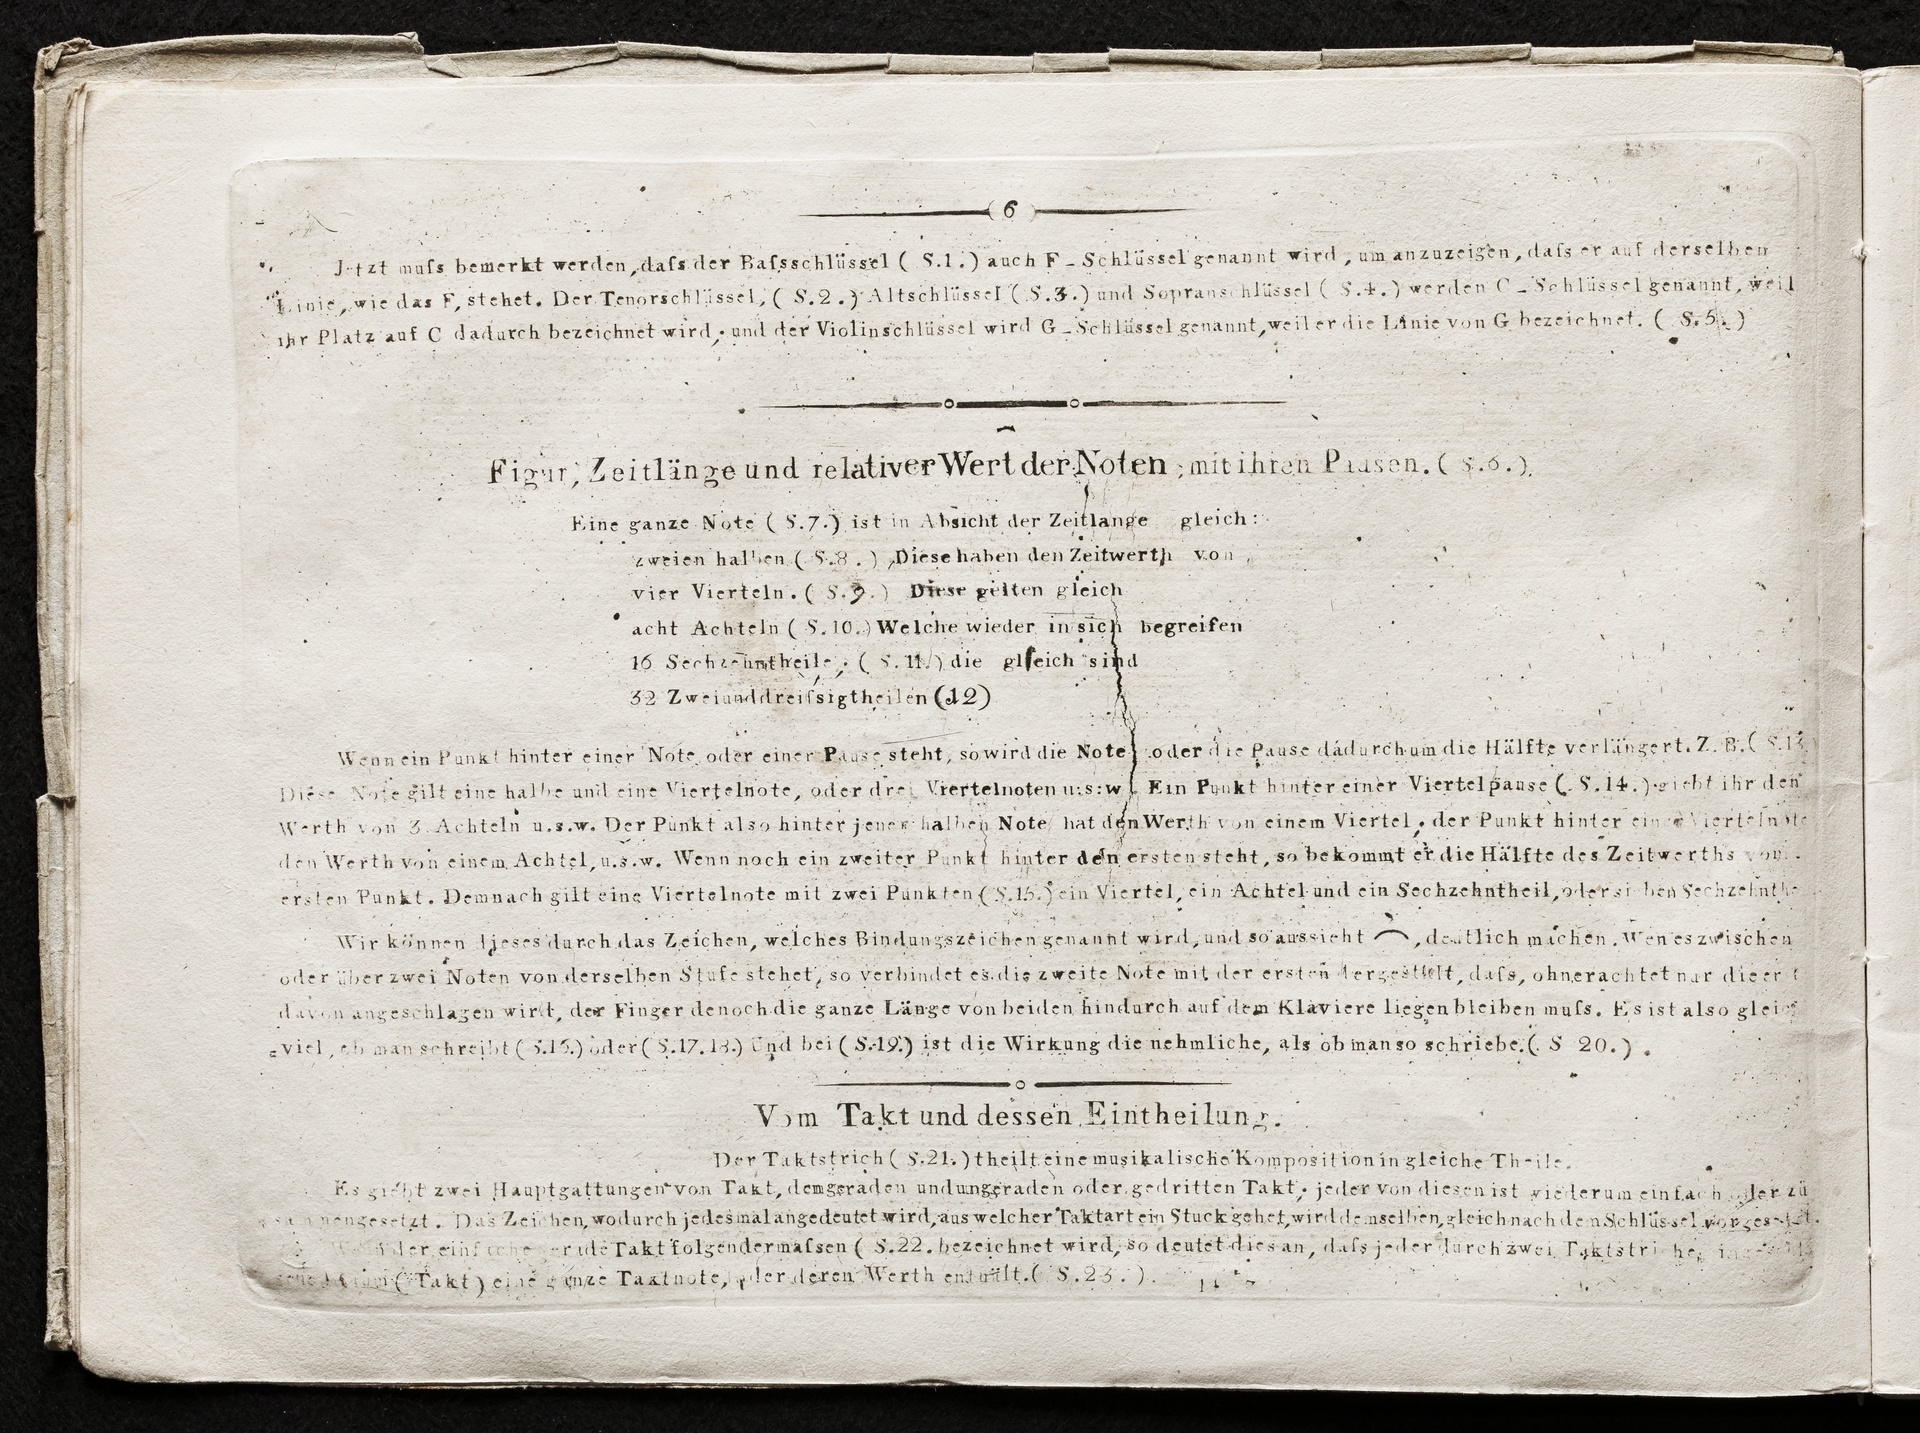 6
Jetzt muſs bemerkt werden, daſs der Baſsschlüssel ( S.1.) auch F-Schlüssel genannt wird, um anzuzeigen, daſs er auf derselben
Linie, wie das F, stehet. Der Tenorschlüssel, ( S.2.) Altschlüssel ( S.3.) und Sopranschlüssel ( S.4.) werden C-Schlüssel genannt, weil
ihr Platz auf C dadurch bezeichnet wird, und der Violinschlüssel wird G-Schlüssel genannt, weil er die Linie von G bezeichnet. ( S.5.)
Figur, Zeitlänge und relativer Wert der Noten, mit ihren Pausen. ( S.6.).
Eine ganze Note ( S.7.) ist in Absicht der Zeitlange gleich:
zweien halben ( S.8.) Diese haben den Zeitwerth von
vier Vierteln. ( S.9.) Diese gelten gleich
acht Achteln ( S.10.) Welche wieder in sich begreifen
16 Sechzehntheile, ( S.11.) die gleich sind
32 Zweiunddreiſsigtheilen (12)
Wenn ein Punkt hinter einer Note oder einer Pause steht, so wird die Note oder die Pause dadurch um die Hälfte verlängert. Z. B. ( S.13.
Diese Note gilt eine halbe und eine Viertelnote, oder drei Viertelnoten u.s.w. Ein Punkt hinter einer Viertelpause ( S.14.) giebt ihr den
Werth von 3 Achteln u.s.w. Der Punkt also hinter jener halben Note hat den Werth von einem Viertel, der Punkt hinter einer Viertelnote
den Werth von einem Achtel, u.s.w. Wenn noch ein zweiter Punkt hinter den ersten steht, so bekommt er die Hälfte des Zeitwerths vom
ersten Punkt. Demnach gilt eine Viertelnote mit zwei Punkten ( S.15.) ein Viertel, ein Achtel und ein Sechzehntheil, oder sieben Sechzehnthe
Wir können dieses durch das Zeichen, welches Bindungszeichen genannt wird, und so aussieht ⌒, deutlich machen. Wen es zwischen
oder über zwei Noten von derselben Stufe stehet, so verbindet es die zweite Note mit der ersten dergestalt, daſs, ohnerachtet nur die er t
davon angeschlagen wird, der Finger denoch die ganze Länge von beiden hindurch auf dem Klaviere liegen bleiben muſs. Es ist also gleich
=viel, ob man schreibt ( S.16.) oder ( S.17.18.) Und bei ( S.19.) ist die Wirkung die nehmliche, als ob man so schriebe. ( S 20.).
Vom Takt und dessen Eintheilung.
Der Taktstrich ( S.21.) theilt eine musikalische Komposition in gleiche Theile.
Es giebt zwei Hauptgattungen von Takt, den geraden und ungeraden oder gedritten Takt; jeder von diesen ist wiederum einfach oder zu
sammengesetzt. Das Zeichen, wodurch jedesmal angedeutet wird, aus welcher Taktart ein Stuck gehet, wird demselben, gleich nach dem Schlüssel vorgesetzt.
Wenn der einfache gerade Takt folgendermaſsen ( S.22. bezeichnet wird, so deutet dies an, daſs jeder durch zwei Taktstriche
(Takt) eine ganze Taktnote, oder deren Werth enthält. ( S.23.).